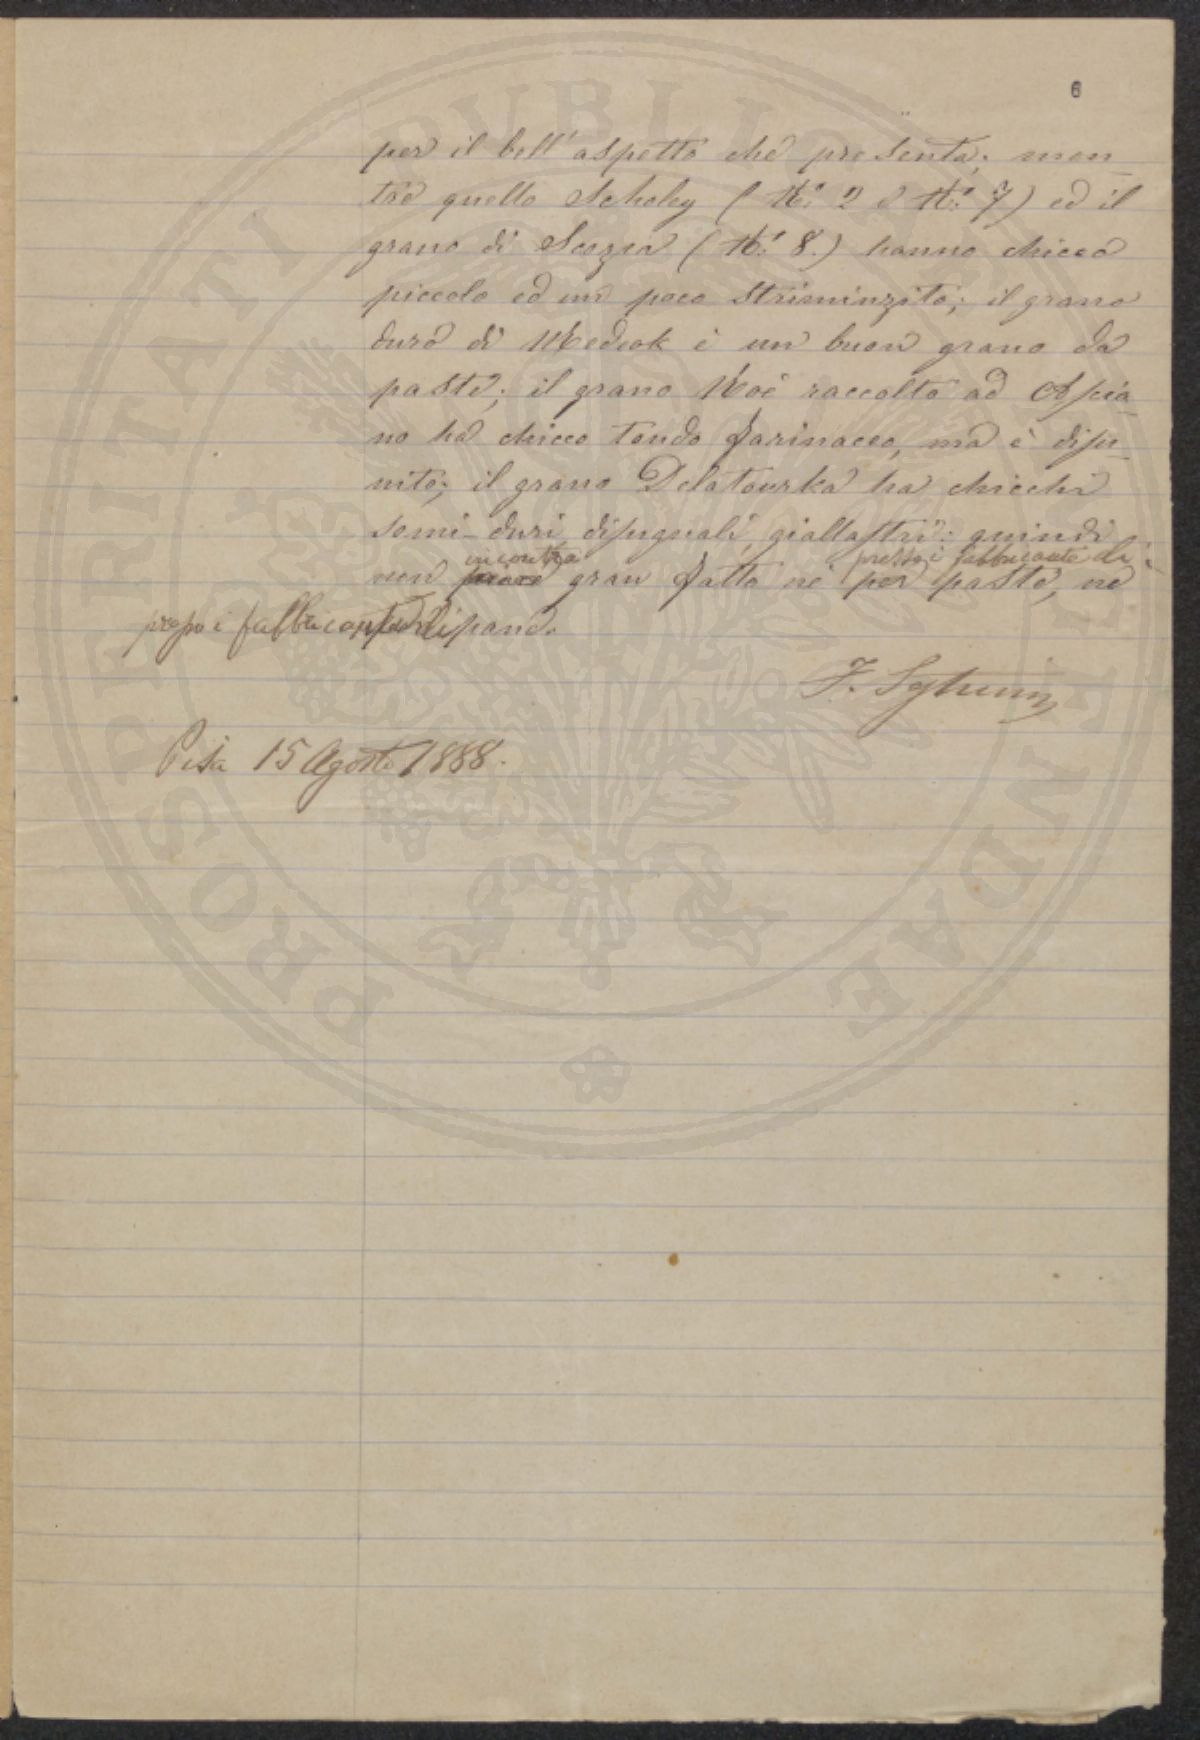 6
per il bell'aspetto che presenta; men
tre quello Scholey (N.° 2 e N.° 7) ed il
grano di Scozia (N.° 8.) hanno chicco
piccolo ed un poco striminzito; il grano
duro di Medeok è un buon grano da
paste; il grano Noè raccolto ad Asscia
no ha chicco tondo farinaceo, ma è disu
nito; il grano Delatourka ha chicchi
semi-duri, disuguali, giallastri: quindi
incontra presso i fabbricante di
non piace gran fatto nè per paste, nè
presso i fabbricante di pane.
F. Sghu
Pisa 15 Agosto 1888.
PROSPERITATI PUBLICAE AUGENDAE